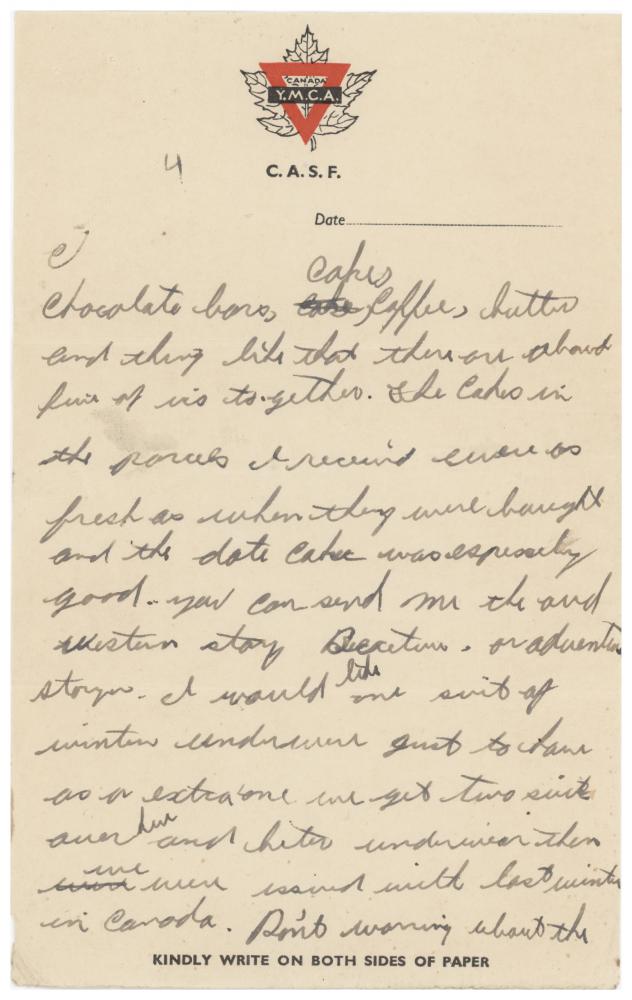 CANADA
Y.M.C.A.
C.A.S.F.
4
Date
cakes
chocolate bars, cake, Coffee, butter
and thing like that there are about
five of us together. The Cakes in
the parcels I received were as
fresh as when they were bought
and the date Cake was
good. you can send me the odd
western story or adventure
storys. I would like one suit of
winter underwear just to have
as a extra one we get two suits
over here and better underwear then
we were issued with last winter
in Canada. Don't worring about the
KINDLY WRITE ON BOTH SIDES OF PAPER